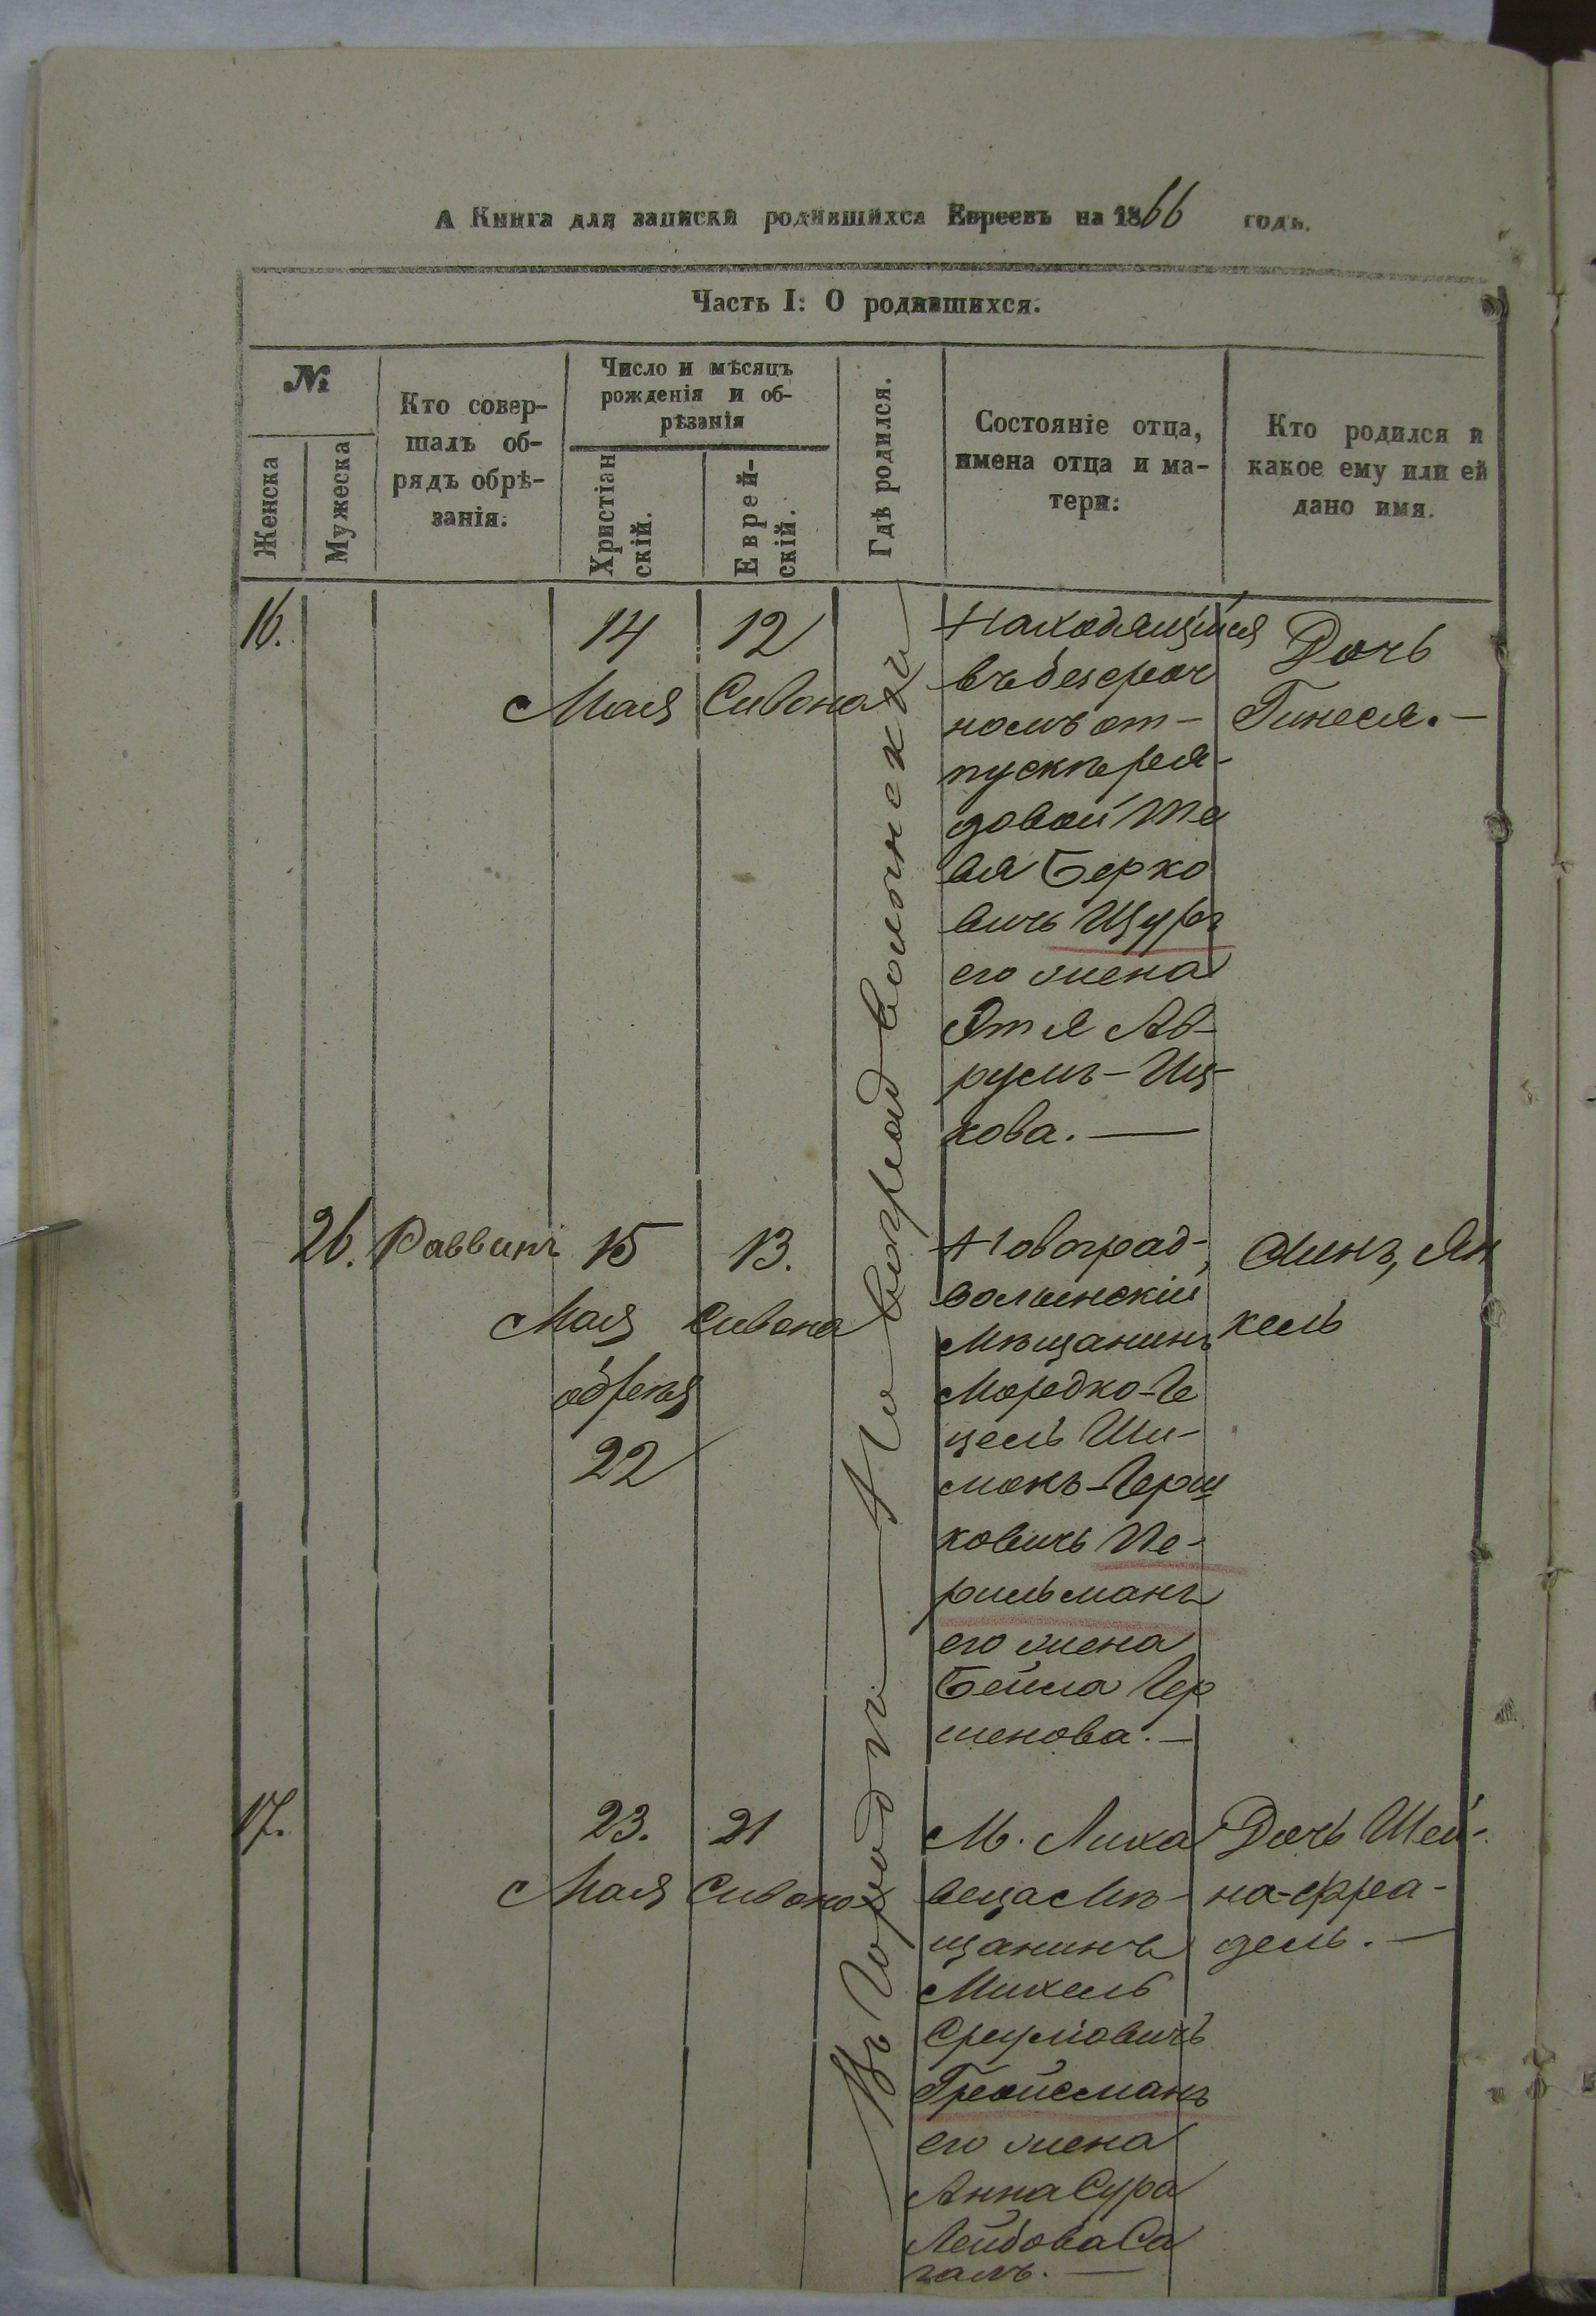 А Книга для записки родившихся Евреевъ на 1866 годъ.
Часть I: О родившихся.
№
Женска
Мужеска
Кто совер-
шалъ об-
рядъ обрѣ-
занія.
Число и мѣсяцъ
рожденія и об-
рѣзанія
Христіан
скій.
Еврей-
скій.
Гдѣ родился.
Состояніе отца,
имена отца и ма-
тери:
Кто родился и
какое ему или ей
дано имя.
Въ Городѣ Новоградволынскѣ
16.
14
Мая
12
Сивона
Находящійся
въ безсроч
номъ от-
пускѣ ря-
довой Те
вя Берко
вичъ Щуръ
его жена
Этя Ав-
румъ-Иц-
кова.
Дочь
Гинеся.
26.
Раввинъ
15
Мая
обрѣз
22
13.
Сивона
Новоград-
волынскій
Мѣщанинъ
Мордко-Ге
цель Ши-
монъ-Герш
ковичъ Пе-
рильманъ
его жена
Бейла Гер
шенова.
Сынъ, Ян
кель
17.
23.
Мая
21
Сивона
М. Лиха
веца Мѣ-
щанинъ
Михель
Сруловичъ
Гройсманъ
его жена
Анна Сура
Лейбова Са
галъ.
Дочь Шей-
на-Фрей-
дель.